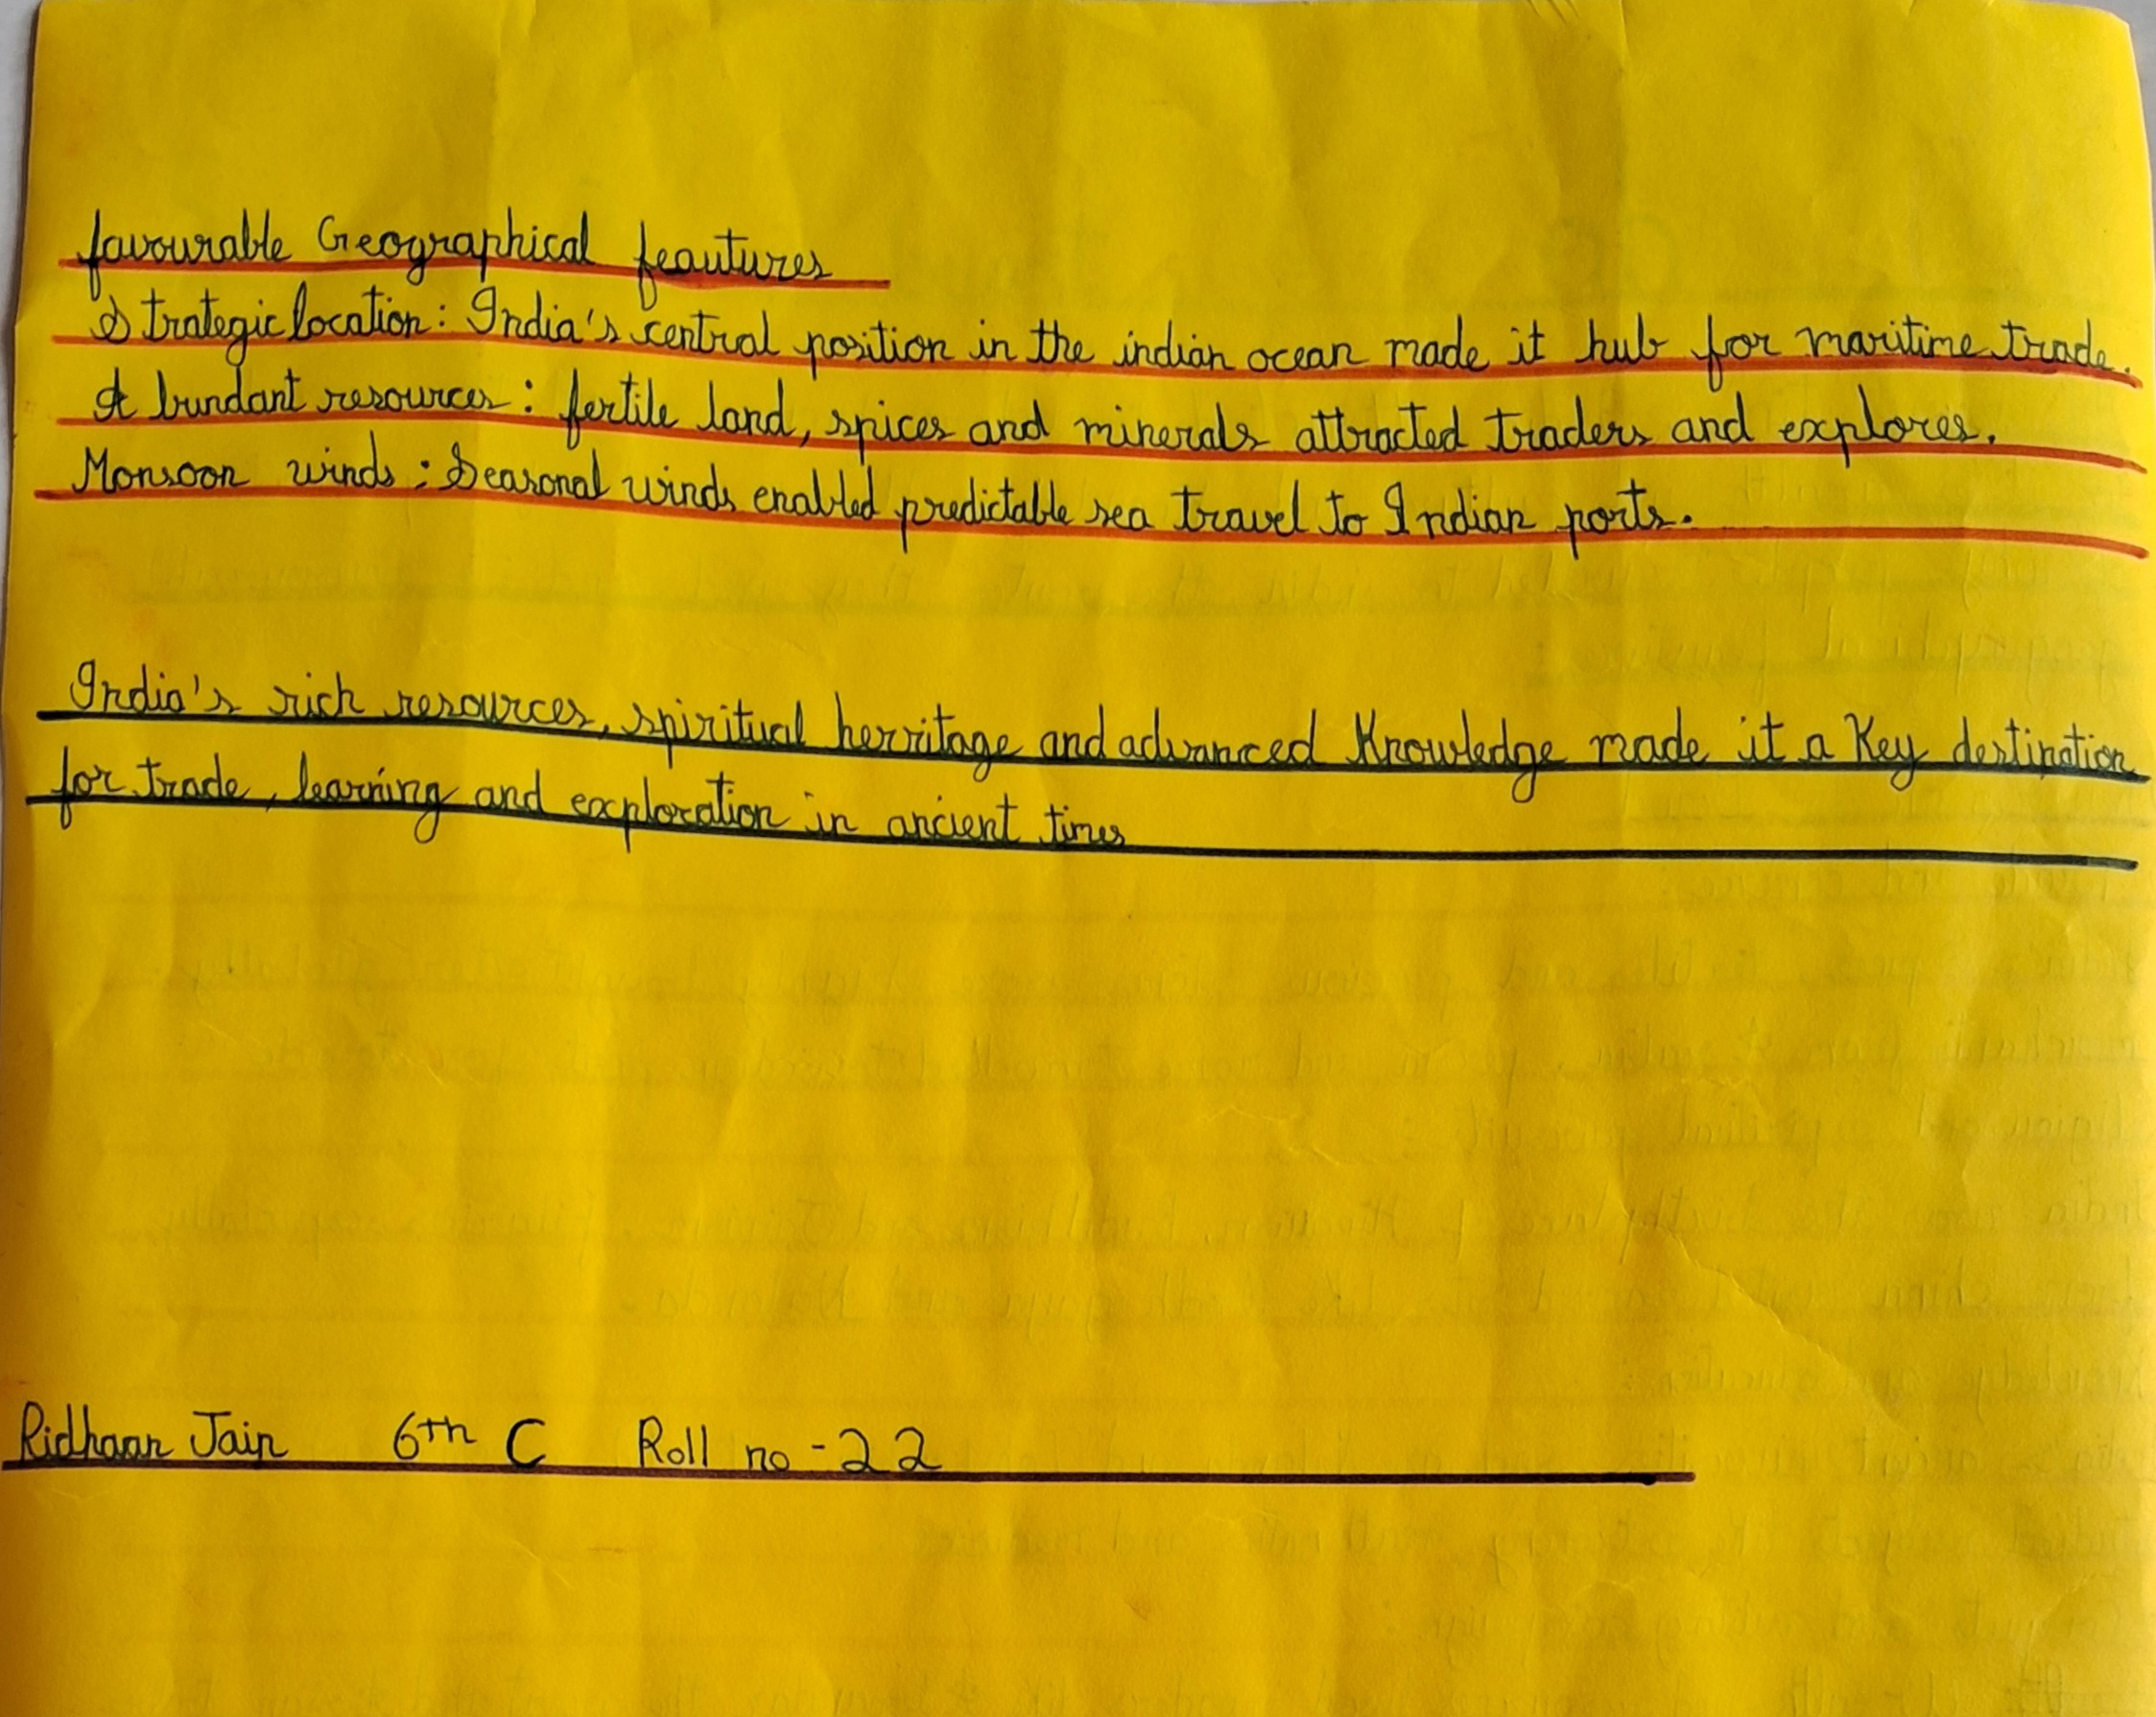 favourable Geographical feautures
Strategic location: India's central position in the indian ocean made it hub for maritime trade.
Abundant resources: fertile land, spices and minerals attracted traders and explores.
Monsoon winds: Seasonal winds enabled predictable sea travel to Indian ports.
India's rich resources, spiritual herritage and advanced Knowledge made it a Key destination
for trade, learning and exploration in ancient times
Ridhaan Jain 6th C Roll no - 22